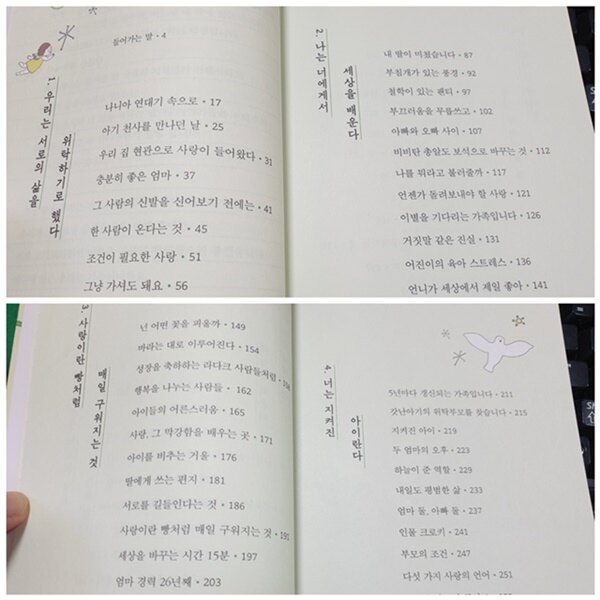 들어가는 말 • 4
1. 우리는 서로의 삶을
위탁하기로 했다
나니아 연대기 속으로 • 17
아기 천사를 만나던 날 • 25
우리 집 현관으로 사랑이 들어왔다 • 31
충분히 좋은 엄마 • 37
그 사람의 신발을 신어보기 전에는 • 41
한 사람이 온다는 것 • 45
조건이 필요한 사랑 • 51
그냥 가셔도 돼요 • 56
2. 나는 너에게서
세상을 배운다
내 딸이 미쳤습니다 • 87
부침개가 있는 풍경 • 92
철학이 있는 팬티 • 97
부끄러움을 무릅쓰고 • 102
아빠와 오빠 사이 • 107
비비탄 총알도 보석으로 바꾸는 것 • 112
나를 뭐라고 불러줄까 • 117
언젠가 돌려보내야 할 사랑 • 121
이별을 기다리는 가족입니다 • 126
거짓말 같은 진실 • 131
어진이의 육아 스트레스 • 136
언니가 세상에서 제일 좋아 • 141
3. 사랑이란 빵처럼
매일 구워지는 것
넌 어떤 꽃을 피울까 • 149
바라는 대로 이루어진다 • 154
성장을 축하하는 라다크 사람들처럼 • 158
행복을 나누는 사람들 • 162
아이들의 어른스러움 • 165
사랑, 그 막강함을 배우는 곳 • 171
아이를 비추는 거울 • 176
딸에게 쓰는 편지 • 181
서로를 길들인다는 것 • 186
사랑이란 빵처럼 매일 구워지는 것 • 191
세상을 바꾸는 시간 15분 • 197
엄마 경력 26년째 • 203
4. 너는 지켜진
아이란다
5년마다 갱신되는 가족입니다 • 211
갓난아기의 위탁부모를 찾습니다 • 215
지켜진 아이 • 219
두 엄마의 오후 • 223
하늘이 준 역할 • 229
내일도 평범한 삶 • 233
엄마 둘, 아빠 둘 • 237
인물 크로키 • 241
부모의 조건 • 247
다섯 가지 사랑의 언어 • 251